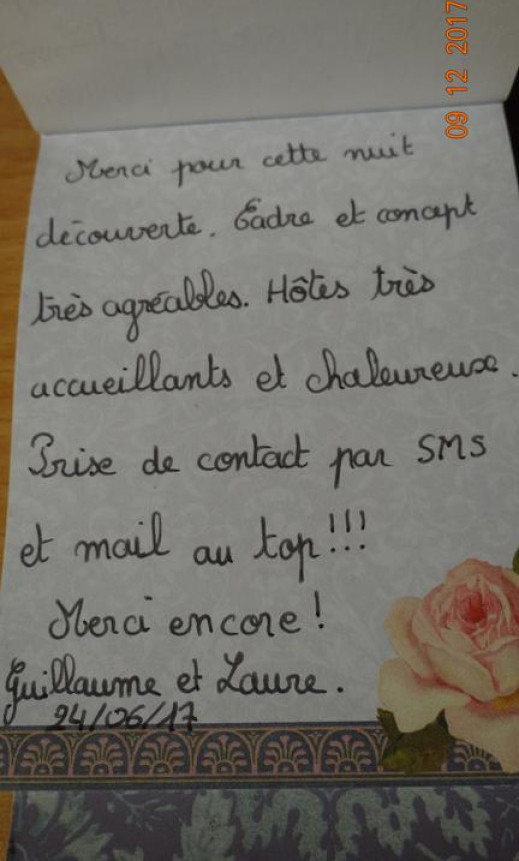 09 12 2017
Merci pour cette nuit
découverte. Cadre et concept
très agréables. Hôtes très
accueillants et chaleureux.
Prise de contact par SMS
et mail au top!!!
Merci encore!
Guillaume et Laure.
24/06/17